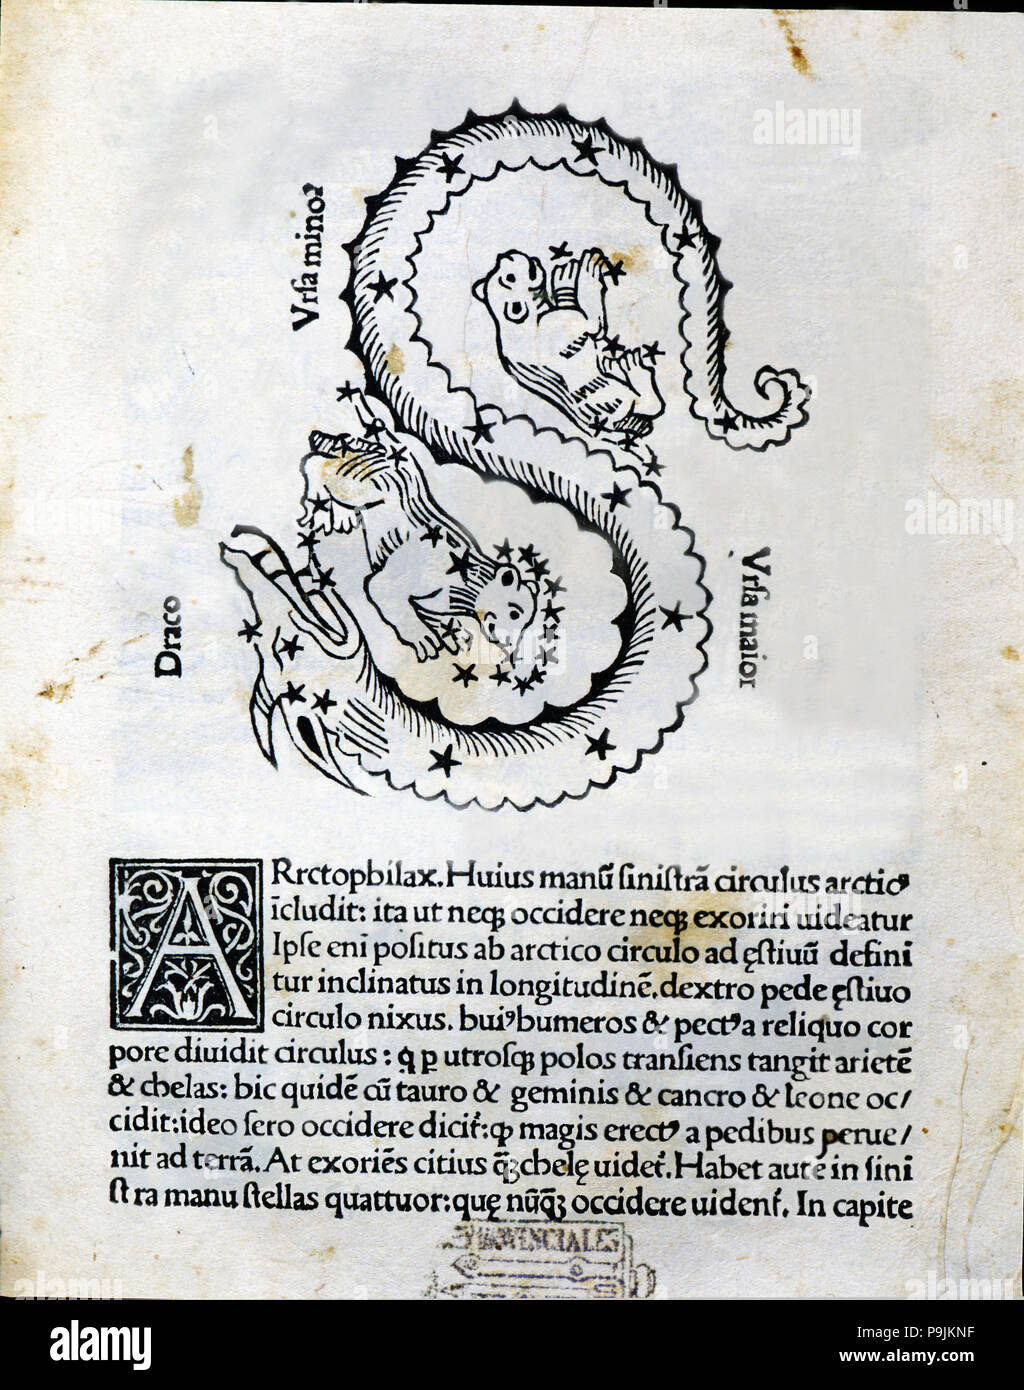 Vrſa minoꝛ
Draco
Vrſa maior
ARrctophilax. Huius manū ſiniſtrā circulus arcticꝰ
īcludit: ita ut neqꝫ occidere neqꝫ exoriri uideatur
Ipſe eni poſitus ab arctico circulo ad ęſtiuū defini
tur inclinatus in longitudinē. dextro pede ęſtiuo
circulo nixus. huiꝰ humeros & pectꝰ a reliquo cor
pore diuidit circulus: q̇ ꝑ utroſqꝫ polos tranſiens tangit arietē
& chelas: hic quidē cū tauro & geminis & cancro & leone oc/
cidit: ideo ſero occidere dicit᷒: ꝙ magis erectꝰ a pedibus perue/
nit ad terrā. At exoriēs citius q̄ꝫ chelę uidet᷒. Habet autē in ſini
ſtra manu ſtellas quattuor: quę nūq̄ꝫ occidere uident᷒. In capite
PROVINCIALES
alamy
Image ID: P9JKNF
www.alamy.com